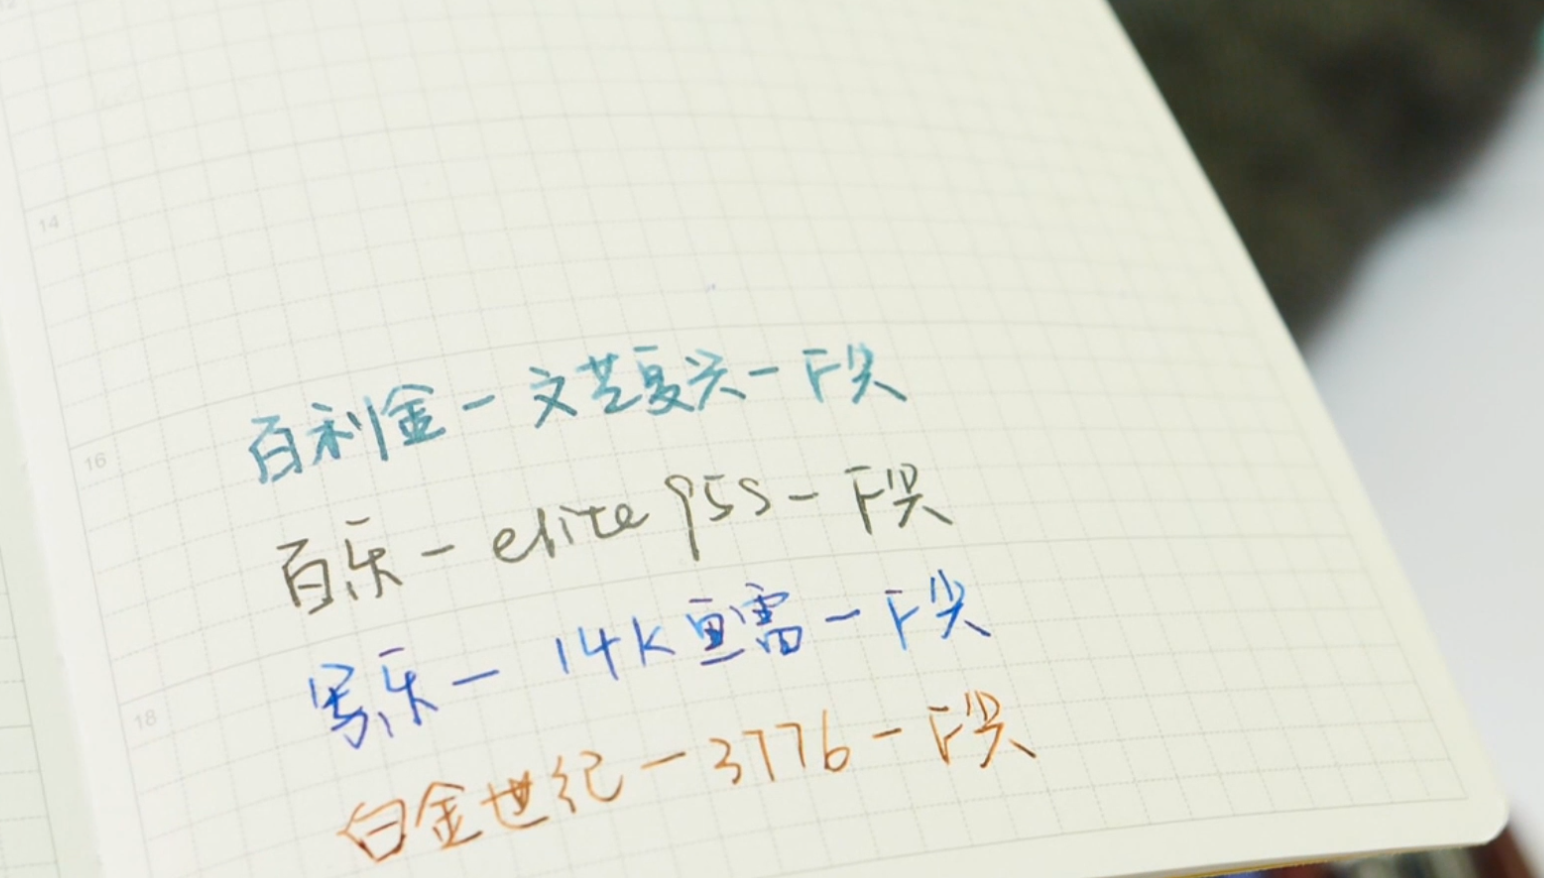 14
16
百利金－文艺复兴－F尖
百乐－elite 95s－F尖
18
写乐－14K鱼雷－F尖
白金世纪－3776－F尖